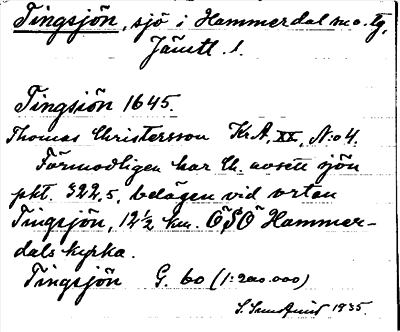 Tingsjön, sjö i Hammerdal m.o.tg,
Jämtl. l.
Tingsiön 1645.
Thomas Christersson Kr.A, XX, N:o 4.
Förmodligen har Ch. avsett sjön
pkt. 322,5, belägen vid orten
Tingsjön, 12½ km. ÖSÖ Hammer-
dals kyrka.
Tingsjön G. 60 (1:200.000)
S. Sundqvist 1935.